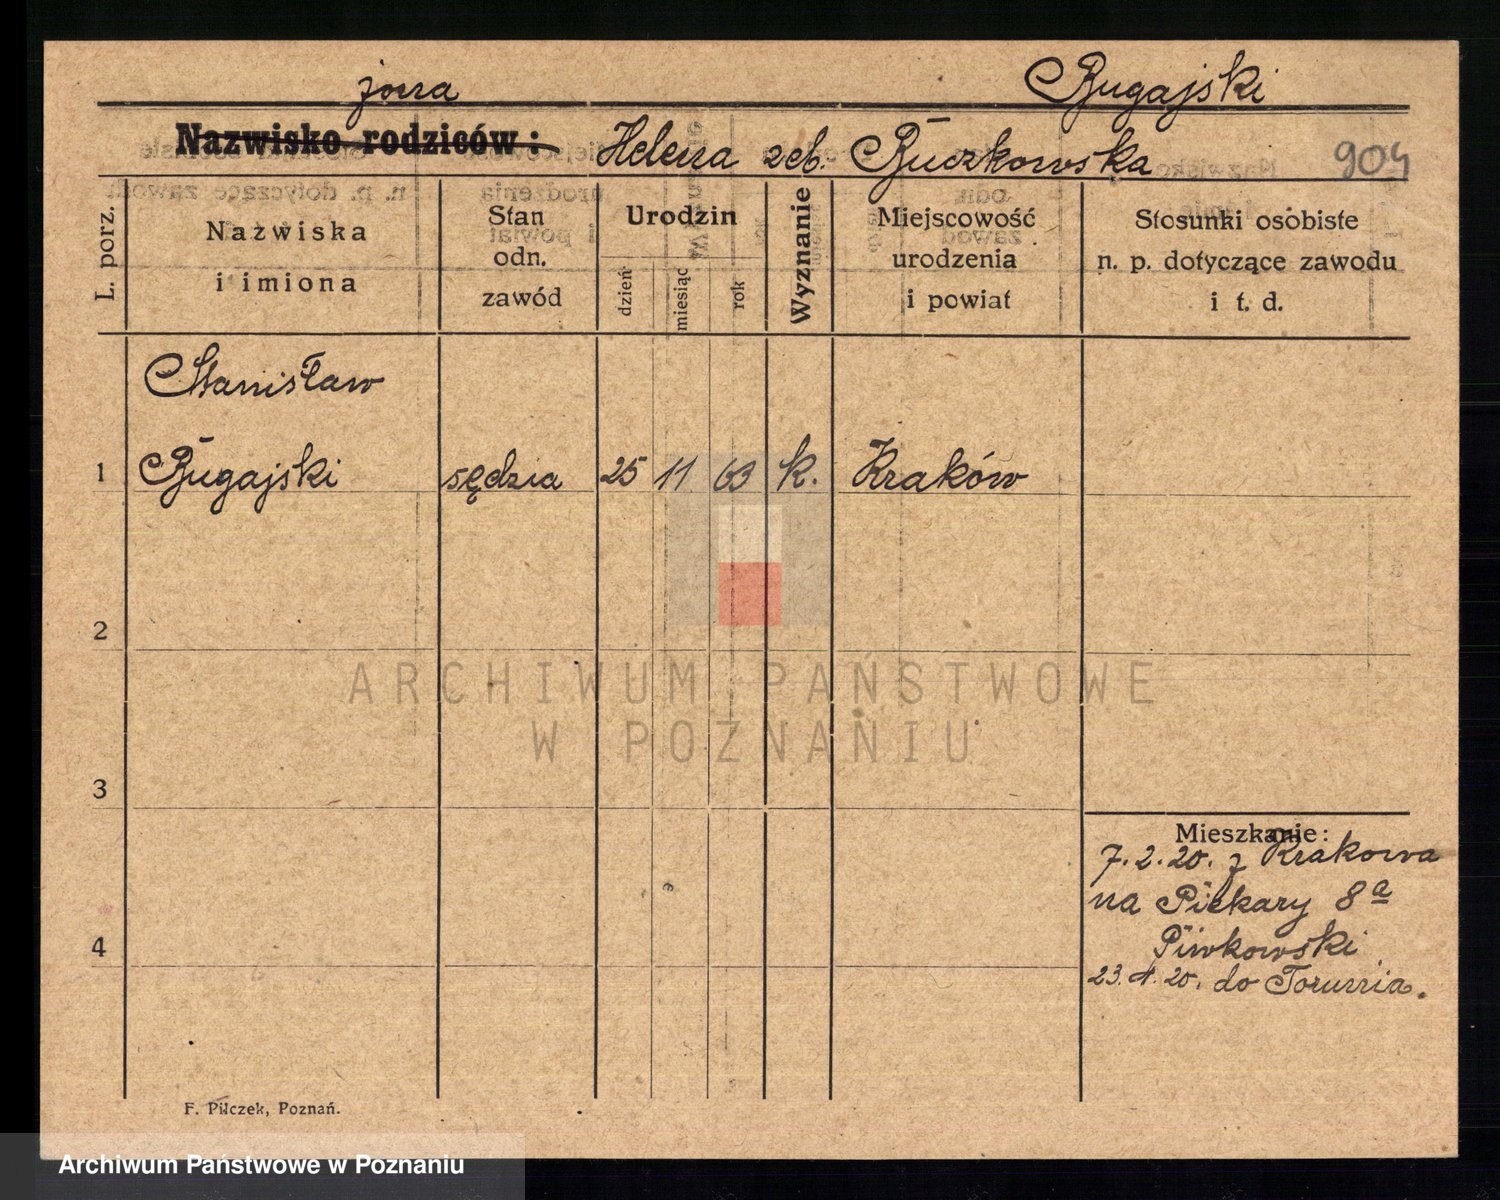 żona Bugajski
Nazwisko rodziców: Helena zeb. Buczkowska 904
L. porz.
Nazwiska
i imiona
Stan
odn.
zawód
Urodzin
dzień
miesiąc
rok
Wyznanie
Miejscowość
urodzenia
i powiat
Stosunki osobiste
n. p. dotyczące zawodu
i t. d.
Stanisław
1 Bugajski sędzia 25 11 63 k. Kraków
2
3
4
Mieszkanie:
7.2.20. z Krakowa
na Piekary 8a
Piwkowski
23.4.20. do Torunia.
F. Pilczek, Poznań.
ARCHIWUM PAŃSTWOWE
W POZNANIU
Archiwum Państwowe w Poznaniu